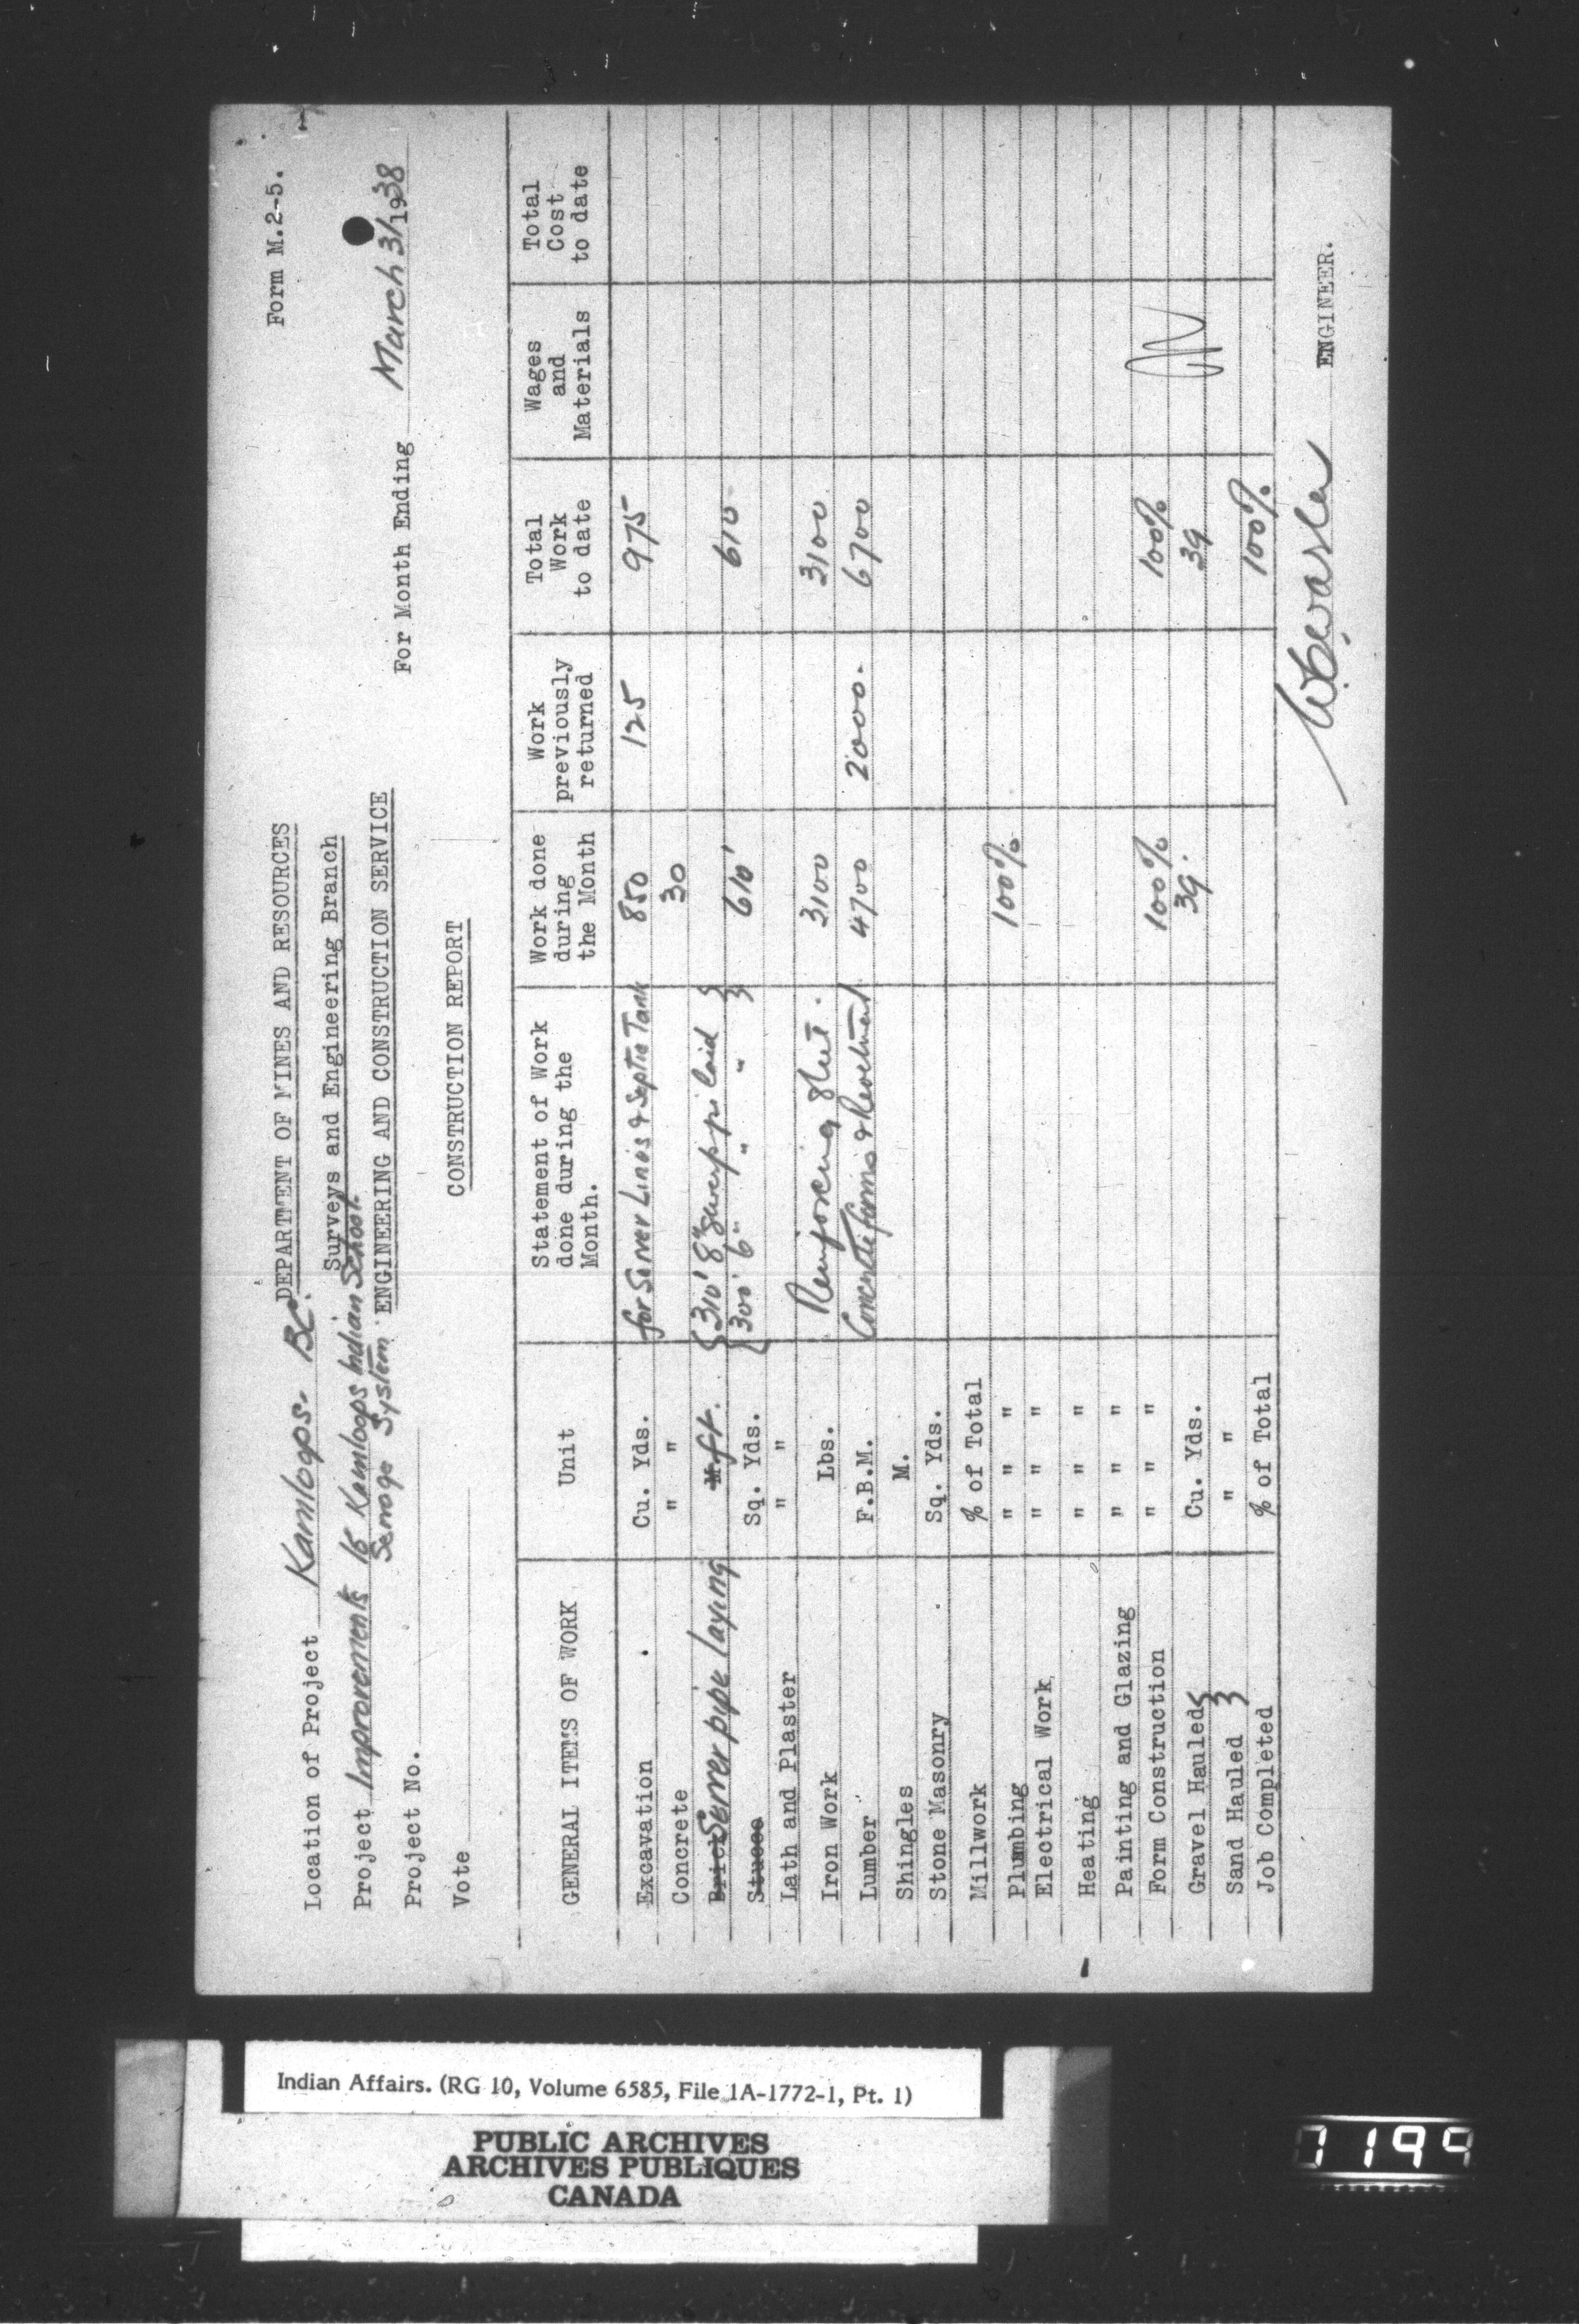 Form M.2-5.
Location of Project Kamloops. BC.
DEPARTMENT OF MINES AND RESOURCES
Surveys and Engineering Branch
Project Improvements to Kamloops Indian School.
Sewage System
ENGINEERING AND CONSTRUCTION SERVICE
Project No.
For Month Ending March 31 1938
Vote
CONSTRUCTION REPORT
GENERAL ITEMS OF WORK | Unit | Statement of Work done during the Month. | Work done during the Month | Work previously returned | Total Work to date | Wages and Materials | Total Cost to date
Excavation . | Cu. Yds. | for Sewer Lines & Septic Tank | 850 | 125 | 975
Concrete | " " | 30
Brick Sewer pipe laying | M. ft. | { 310' 8" Sewer pipe laid }
Stucco | Sq. Yds. | { 300' 6" " " } | 610' | 610
Lath and Plaster | " "
Iron Work | Lbs. | Reinforcing Steel . | 3100 | 3100
Lumber | F.B.M. | Concrete forms & Revetment | 4700 | 2000. | 6700
Shingles | M.
Stone Masonry | Sq. Yds.
Millwork | % of Total
Plumbing | " " " | 100%
Electrical Work | " " "
Heating | " " "
Painting and Glazing | " " "
Form Construction | " " " | 100% | 100%
Gravel Hauled } | Cu. Yds. | 39. | 39
Sand Hauled } | " "
Job Completed | % of Total | 100%
ENGINEER.
Indian Affairs. (RG 10, Volume 6585, File 1A-1772-1, Pt. 1)
PUBLIC ARCHIVES
ARCHIVES PUBLIQUES
CANADA
1199